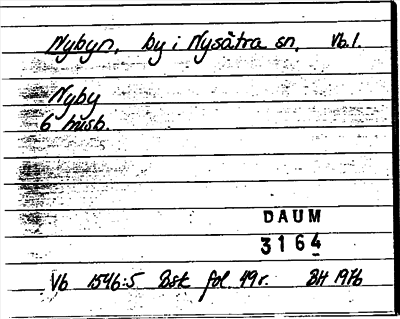 Nybyn, by i Nysätra sn. Vb.l.
Nyby
6 husb.
DAUM
3164
Vb 1546:5 Bsk fol. 49r. BH 1976